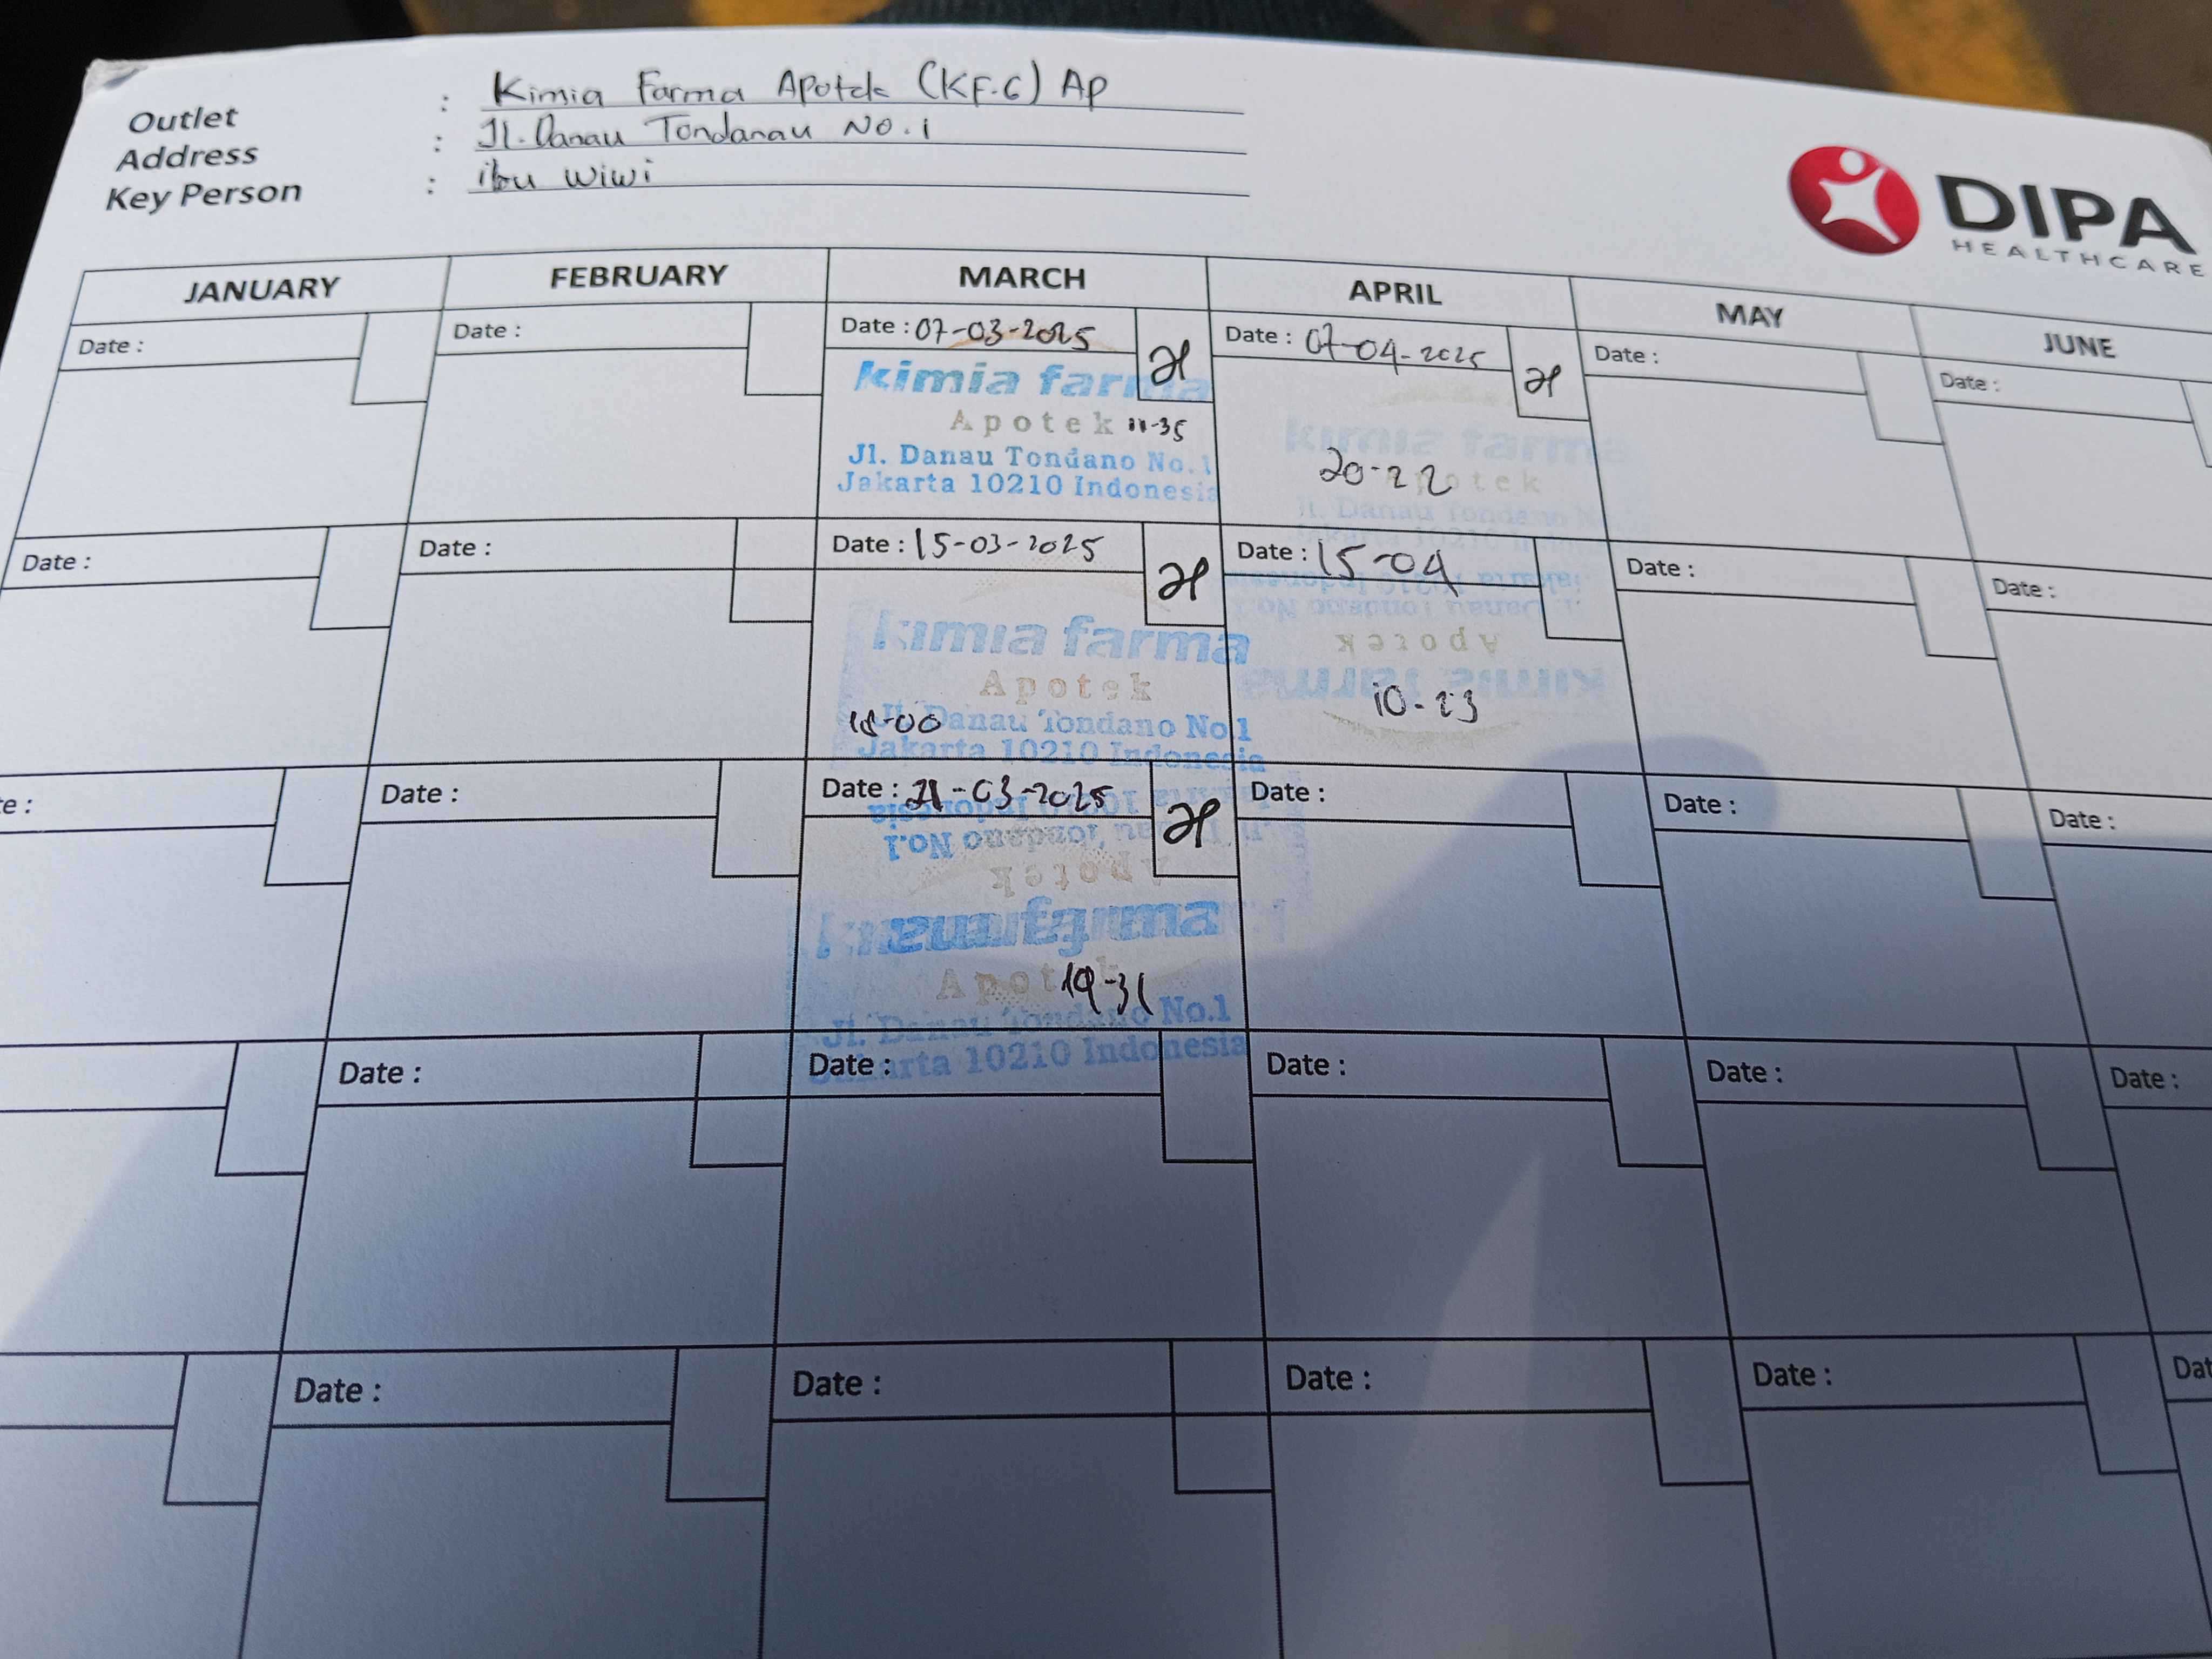 Outlet : Kimia Farma Apotek (KF.6) Ap
Address : Jl. Danau Tondanau No. 1
Key Person : ibu wiwi
DIPA
HEALTHCARE
JANUARY FEBRUARY MARCH APRIL MAY JUNE
Date : Date : Date : 07-03-2025 Date : 07-04-2025 Date : Date :
kimia farma kimia farma
Apotek 11-35 Apotek
20-22
Jl. Danau Tondano No.1 Jl. Danau Tondano
Jakarta 10210 Indonesia 10210
Date : Date : Date : 15-03-2025 Date : 15-04 Date : Date :
kimia farma Apotek
Apotek kimia farma
18-00 Jl. Danau Tondano No.1 10-23
Jakarta 10210 Indonesia
te : Date : Date : 21-03-2025 Date : Date : Date :
Indonesia
Tondano No.1
Apotek
kimia farma
Apotek 19-31
Jl. Danau Tondano No.1
Jakarta 10210 Indonesia
Date : Date : Date : Date : Date :
Date : Date : Date : Date : Dat